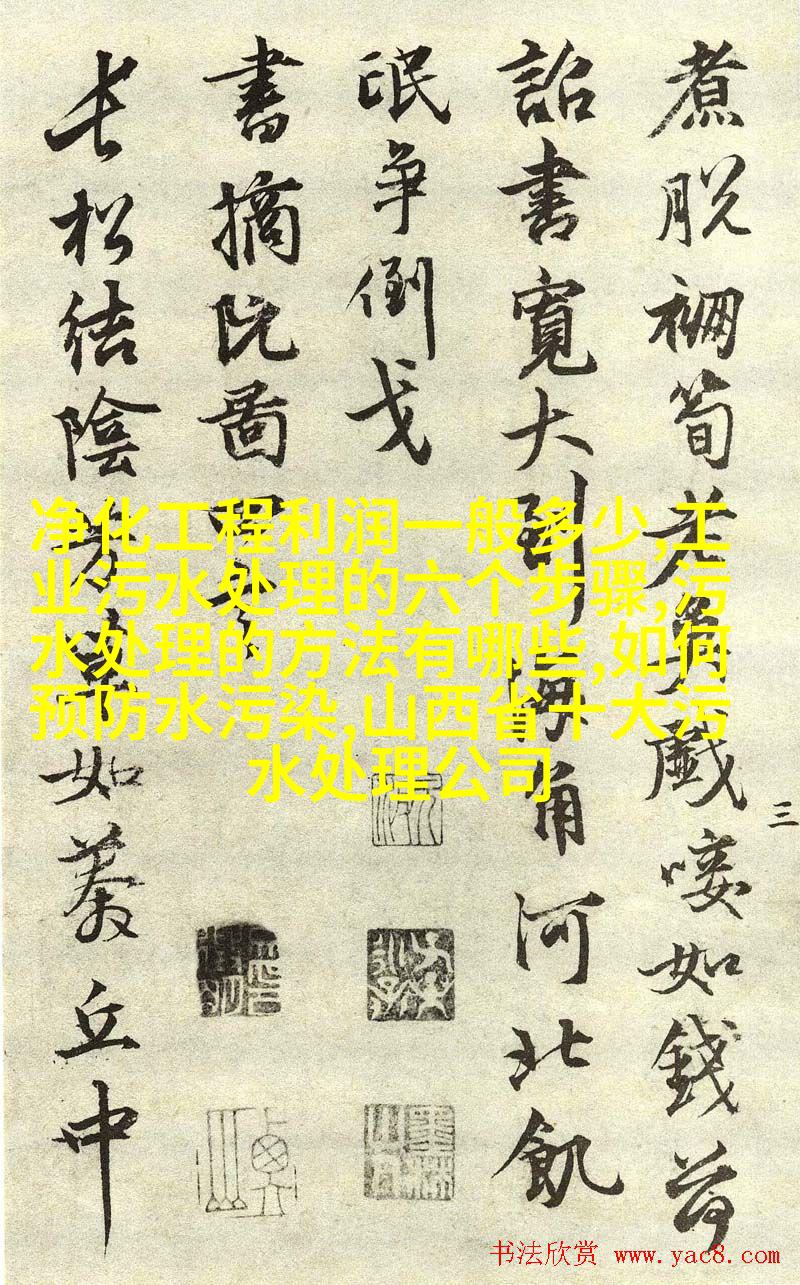 煮脱筍戲唼如錢荷
詔書寬大到角河北飢
氓争倒戈
書摘阮圖
長松結陰如蓁丘中
三
净化工程利润一般多少,工
业污水处理的六个步骤,污
水处理的方法有哪些,如何
预防水污染,山西省十大污
水处理公司
书法欣赏 www.yac8.com